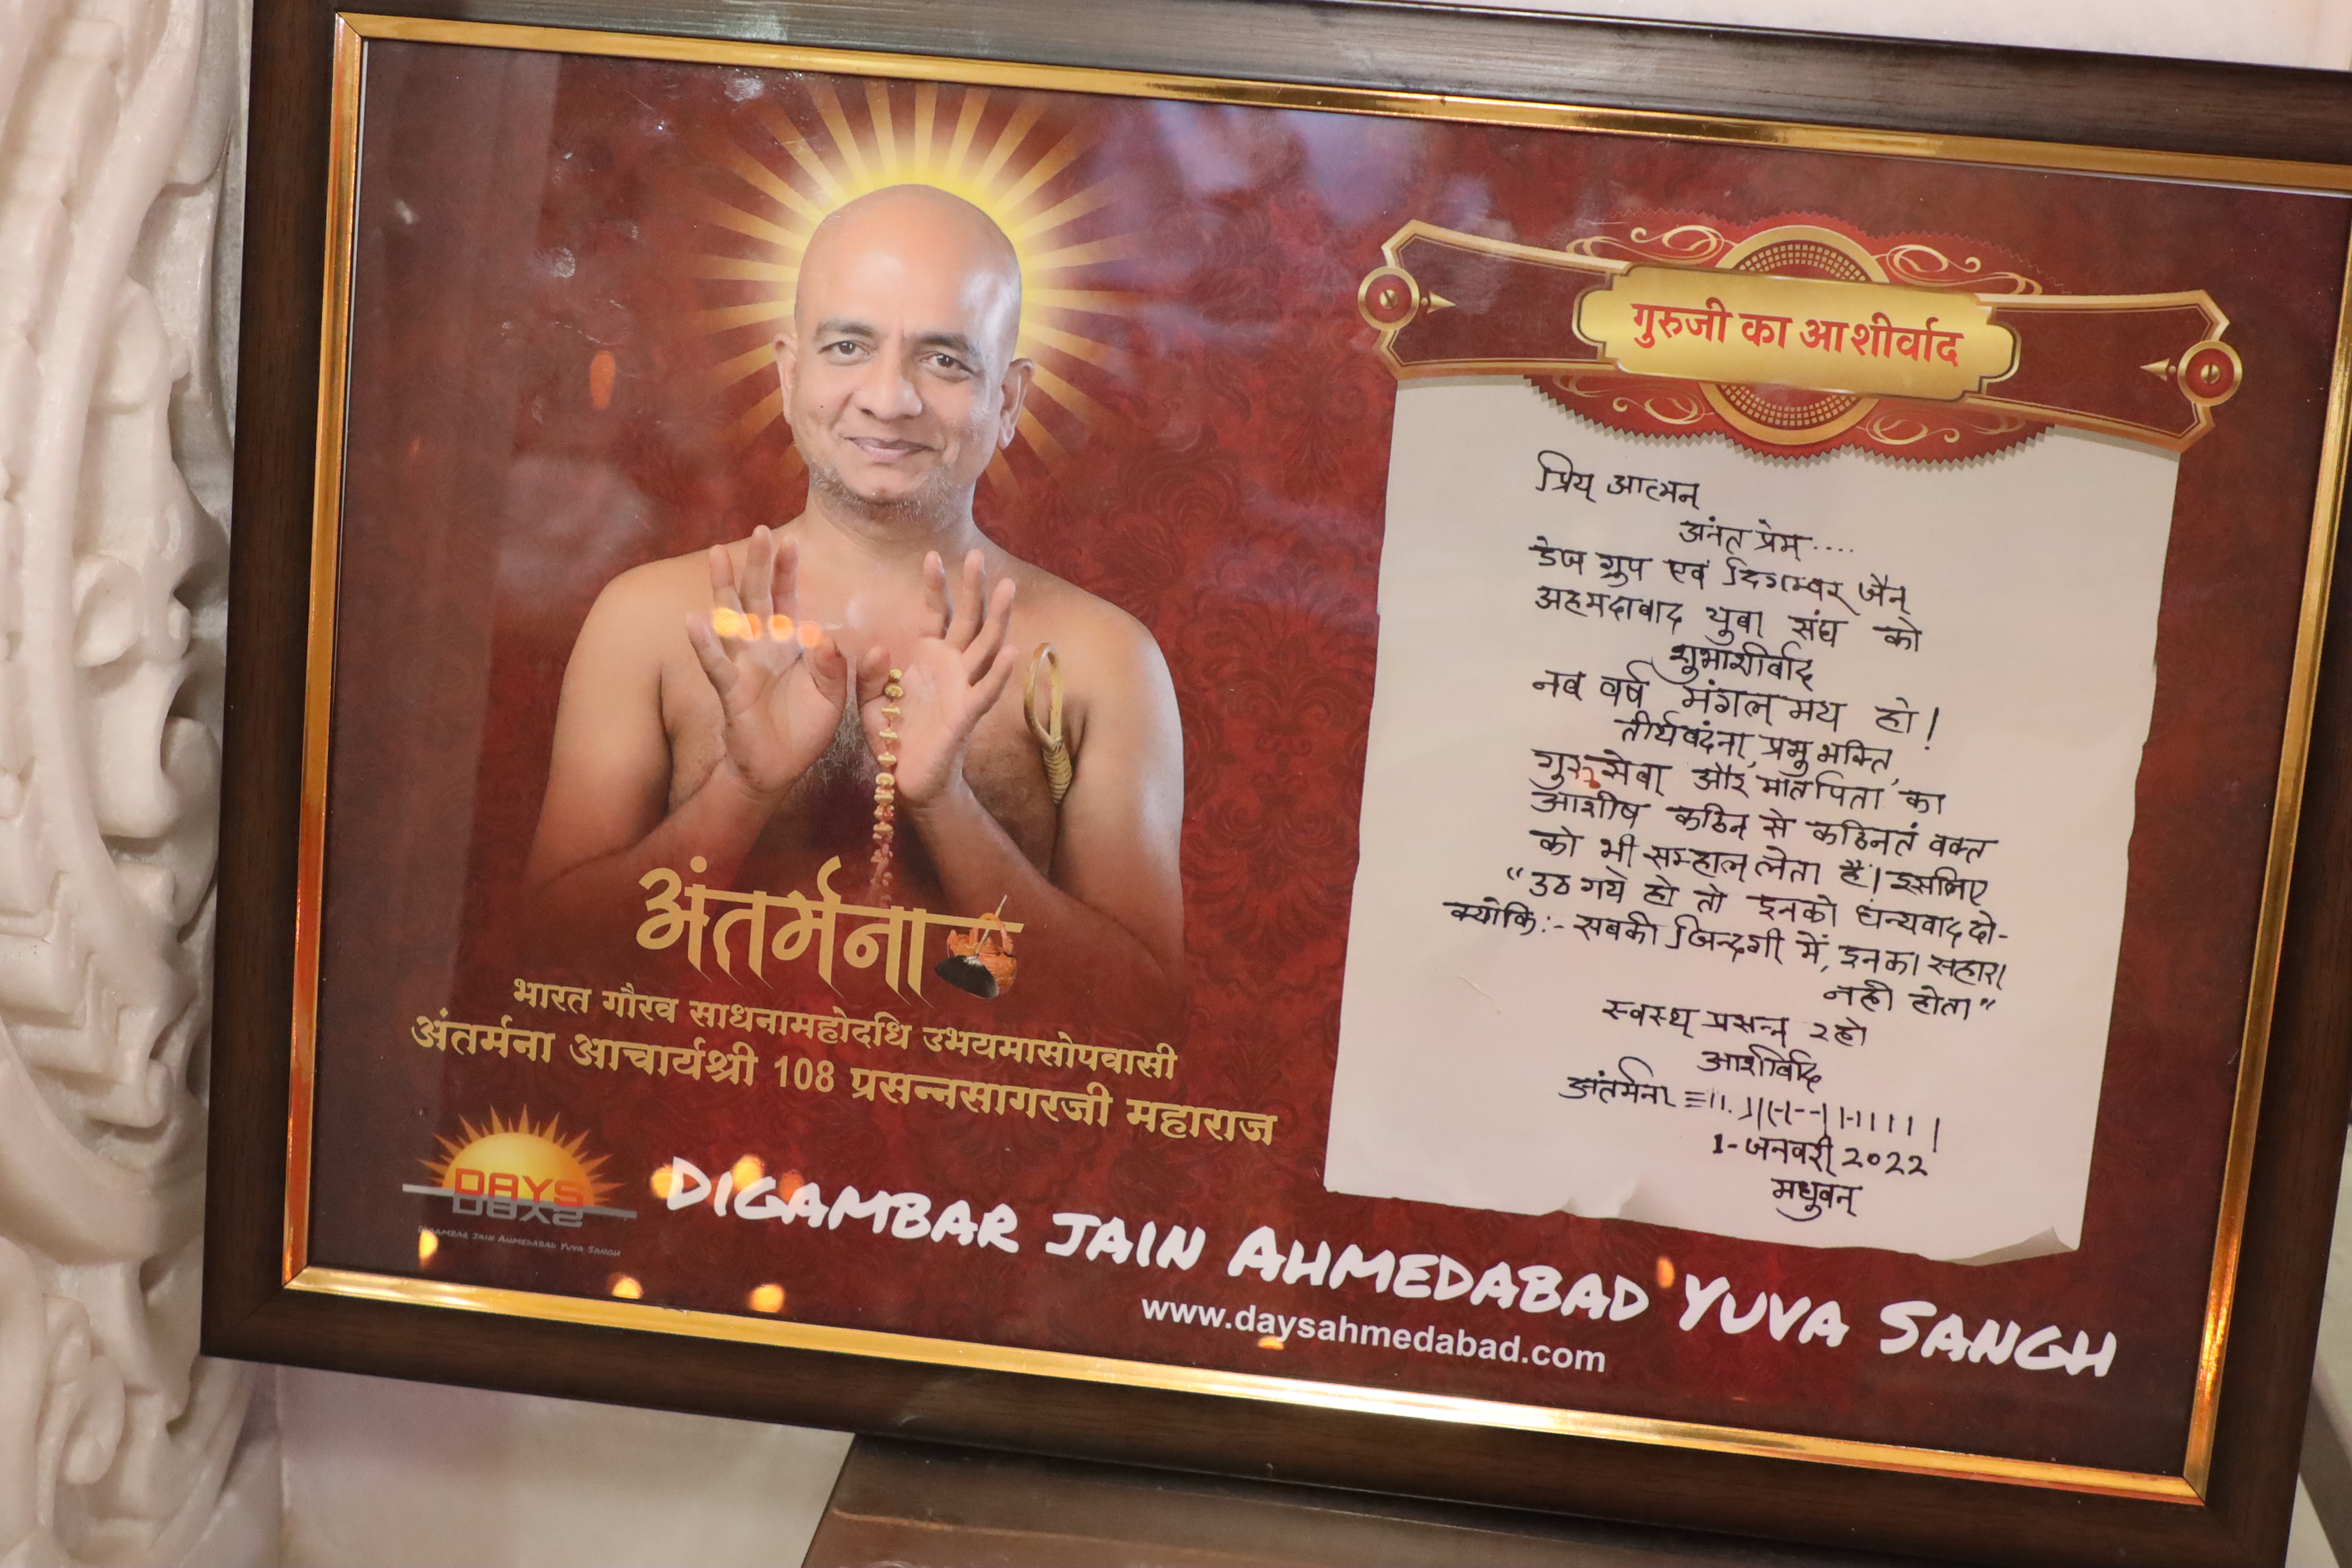 अंतर्मना
भारत गौरव साधनामहोदधि उभयमासोपवासी
अंतर्मना आचार्यश्री 108 प्रसन्नसागरजी महाराज
DAYS
DIGAMBAR JAIN AHMEDABAD YUVA SANGH
गुरुजी का आशीर्वाद
प्रिय् आत्मन्
अंनत प्रेम्....
डेज ग्रुप एवं दिगम्बर् जैन्
अहमदावाद युवा संघ को
शुभाशीर्वाद
नव वर्ष मंगल् मय हो!
तीर्थवदंना, प्रभु भक्ति,
गुरु सेवा और माँतपिता का
आशीष कठिन् से कठिनतं वक्त
को भी सम्हाल् लेता है। इसलिए
"उठ गये हो तो इनको धन्यवाद दो-
क्योकि:- सबकी जिन्दगी में, इनका सहारा
नही होता"
स्वस्थ् प्रसन्न् रहो
आशीर्वाद
अंतर्मना
1-जनवरी 2022
मधुवन्
DIGAMBAR JAIN AHMEDABAD YUVA SANGH
www.daysahmedabad.com